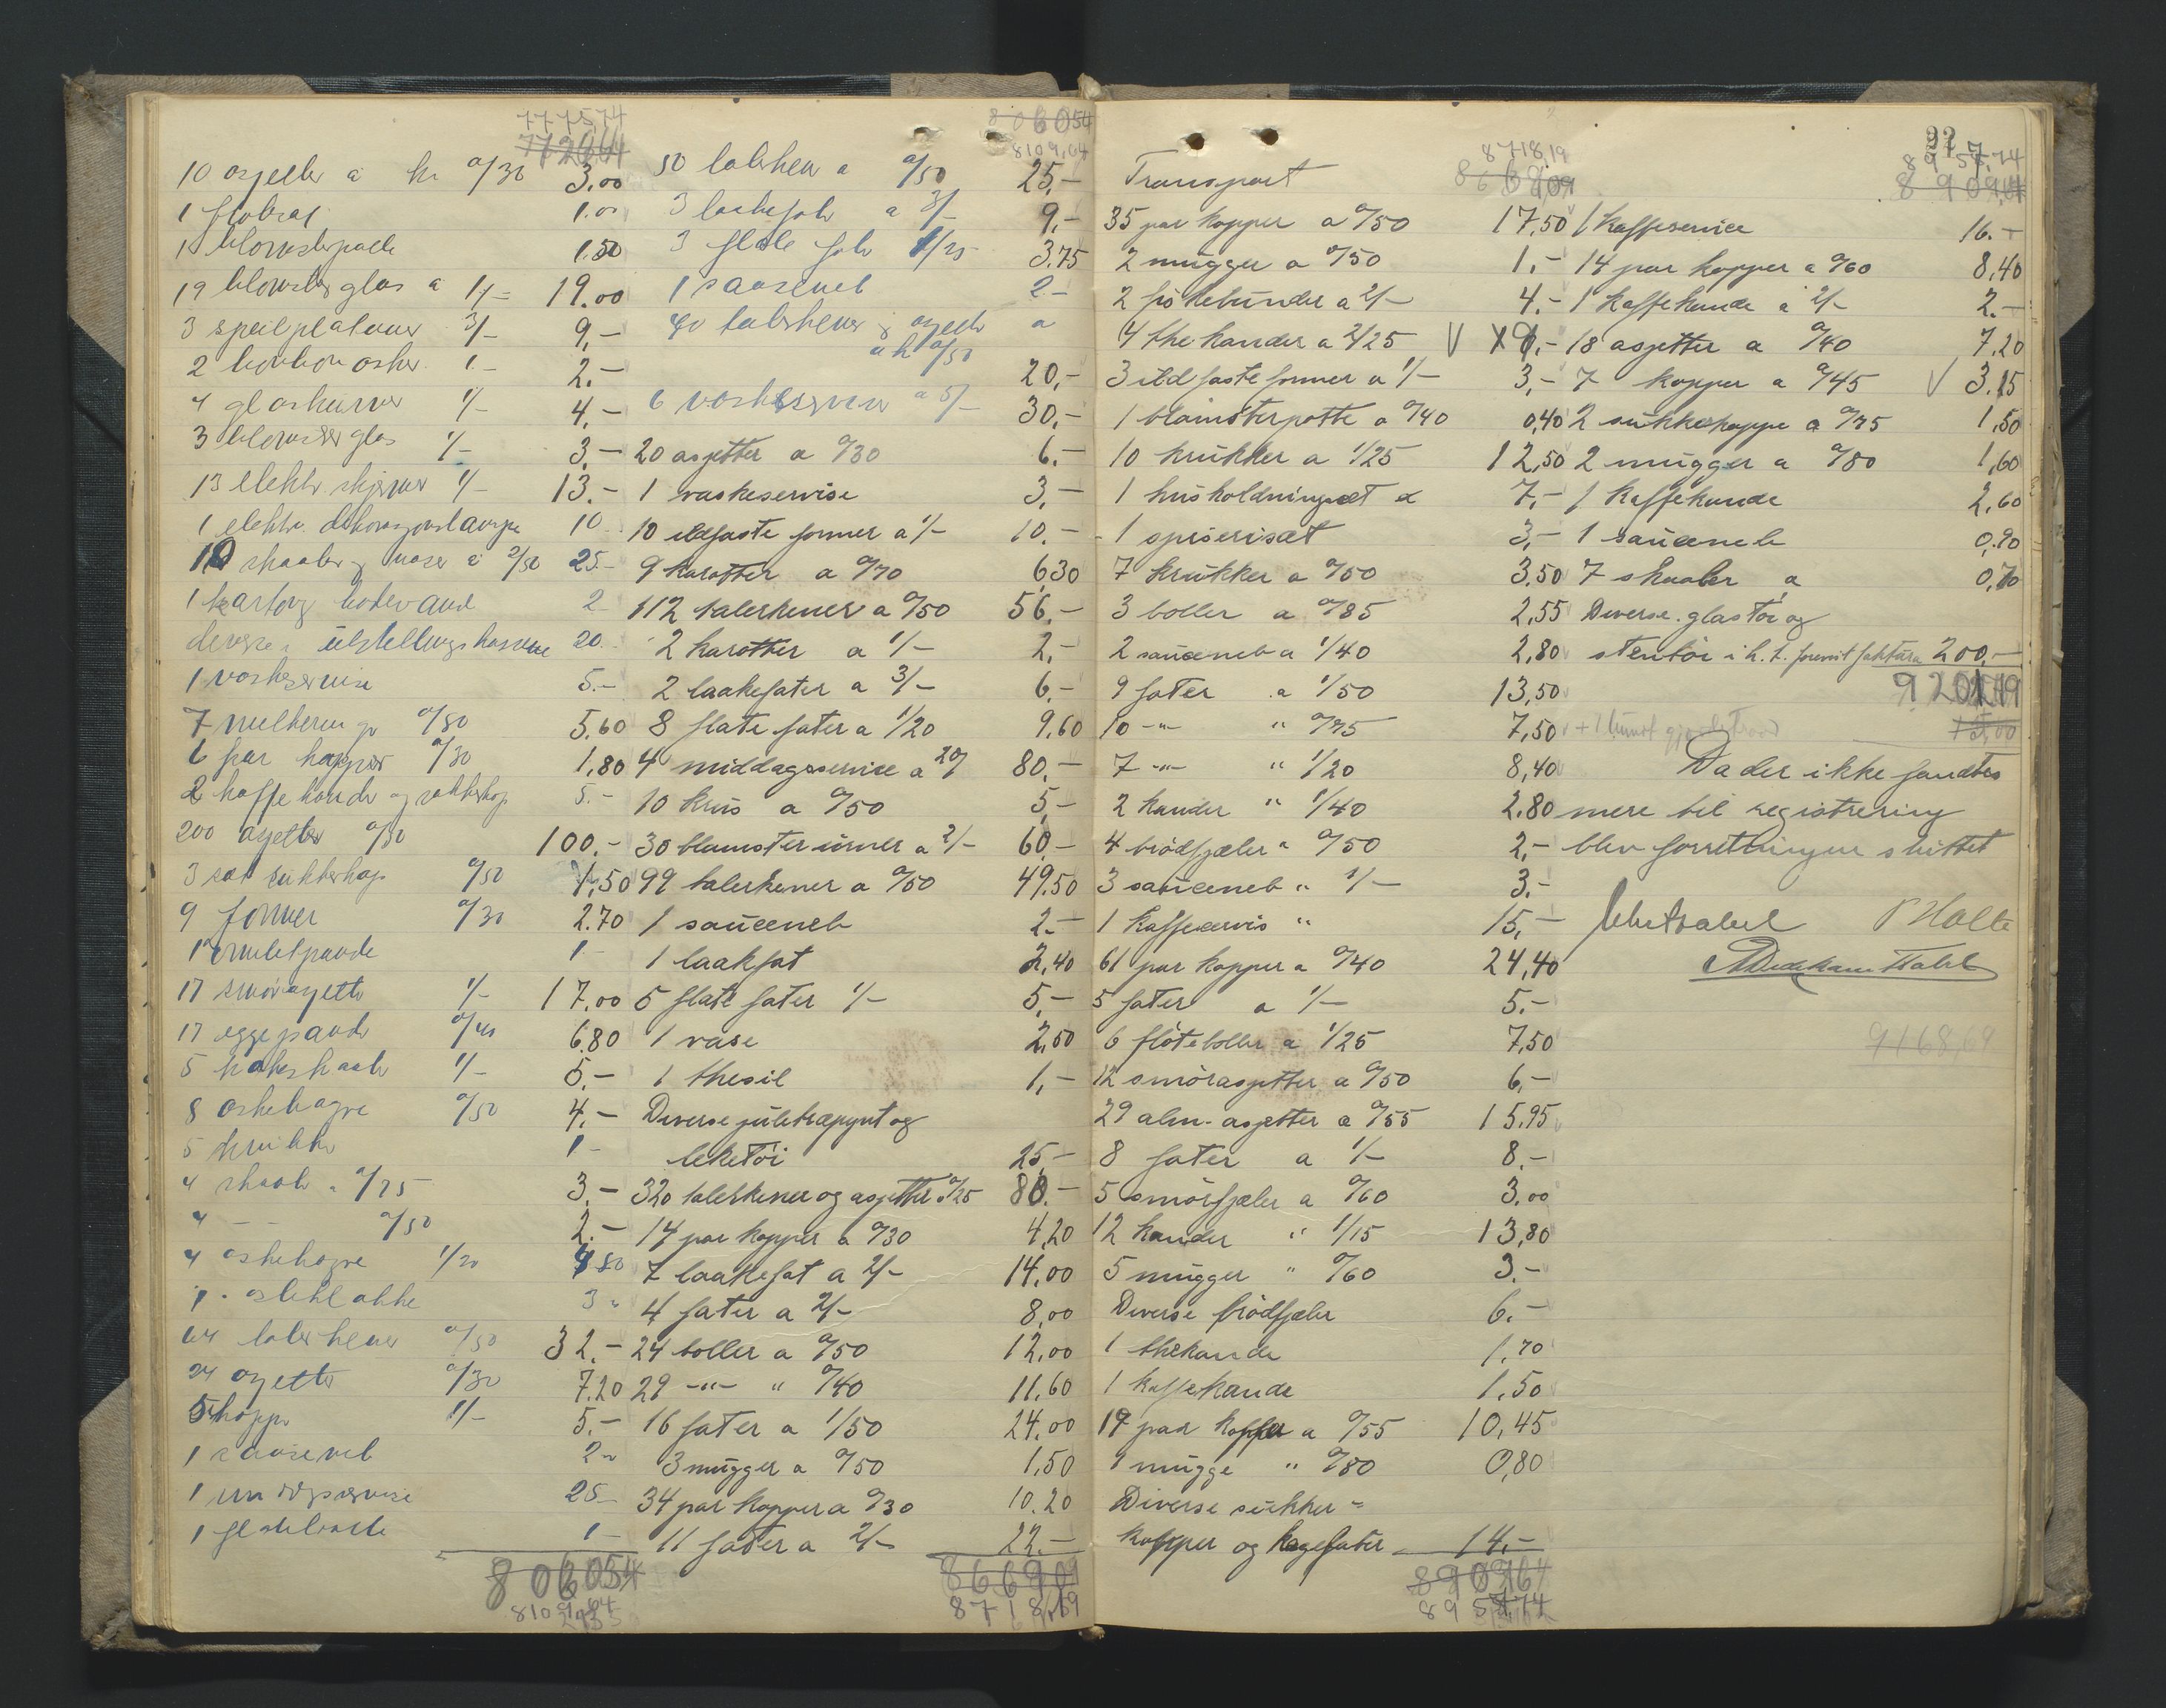 7775,74
7726,64
10 asjetter a kr 0/30 3.00
1 1.00
1 blomsterpotte 1.50
19 blomsterglas a 1/- 19.00
3 speilplatauer 3/- 9,-
2 bonbon æsker 1.- 2.-
4 glaskurver 1/- 4,-
3 blomsterglas 1/- 3.-
13 elektr. skjermer 1/- 13.-
1 elektr. 10.-
10 skaaler og vaser a 2/50 25.-
1 2.-
diverse i utstillingskassene 20.-
1 vaskeservise 5.-
7 0/80 5.60
6 par kopper 0/30 1,80
2 kaffekander og sukkerkop 5.-
200 asjetter 0/50 100.-
3 sæt sukkerkop 0/50 1,50
9 former 0/30 2.70
1 omeletpande 1-
17 smørasjetter 1/- 17,00
17 eggepander 0/40 6.80
5 1/- 5.-
8 askebægre 0/50 4.-
5 krukker 1-
4 skaaler a 0/75 3.-
4 - - 0/50 2.-
4 askebægre 1/20 4 80
1 osteklokke 3 -
64 talerkener 0/50 32.-
24 asjetter 0/30 7.20
5 kopper 1/- 5.-
1 sauseneb 2 -
1 25-
1 1-
8060,54
8109,64
8060,54
8109,64
50 talerkener a 0/50 25,-
3 laakefater a 3/- 9,-
3 flate fater 1/25 3.75
1 sauseneb 2.-
40 talerkener og asjetter a
a kr 0/50 20,-
6 vaskeserviser a 5/- 30,-
20 asjetter a 0/30 6.-
1 vaskeservise 3,-
10 ildfaste former a 1/- 10.-
9 karotter a 0/70 6,30
112 talerkener a 0/50 56,-
2 karotter a 1/- 2,-
2 laakefater a 3/- 6.-
8 flate fater a 1/20 9,60
4 middagsservice a 20/ 80,-
10 krus a 0/50 5,-
30 blomsterurner a 2/- 60,-
99 talerkener a 0/50 49.50
1 sauceneb 2.-
1 laakfat 2,40
5 flate fater 1/- 5,-
1 vase 2,50
1 thesil 1,-
Diverse juletræpynt og
leketøi 25,-
320 talerkener og asjetter a 0/25 80.-
14 par kopper a 0/30 4,20
7 laakefat a 2/- 14,00
4 fater a 2/- 8,00
24 boller a 0/50 12,00
29 -"- " 0/40 11.60
16 fater a 1/50 24,00
3 mugger a 0/50 1,50
34 par kopper a 0/30 10.20
11 fater a 2/- 22.-
8669,09
8718,19
8718,19
8669,09
Transport
35 par kopper a 0/50 17,50
2 mugger a 0/50 1,-
2 a 2/- 4.-
4 thekander a 2/25 V 9,-
3 ildfaste former a 1/- 3,-
1 blomsterpotte a 0/40 0,40
10 krukker a 1/25 12,50
1 husholdningsæt a 7,-
1 spiserisæt 3,-
7 krukker a 0/50 3.50
3 boller a 0/85 2,55
2 sauceneb a 1/40 2,80
9 fater a 1/50 13,50
10 -"- " 0/75 7,50
7 -"- " 1/20 8,40
2 kander " 1/40 2.80
4 brødfjæler a 0/50 2,-
3 sauceneb " 1/- 3.-
1 kaffeservis " 15,-
61 par kopper a 0/40 24,40
5 fater a 1/- 5.-
6 fløteboller a 1/25 7,50
12 smørasjetter a 0/50 6,-
29 alm. asjetter a 0/55 15,95
8 fater a 1/- 8.-
5 smørfjæler a 0/60 3.00
12 kander " 1/15 13,80
5 mugger " 0/60 3.-
Diverse brødfjæler 6.-
1 thekande 1,70
1 kaffekande 1,50
19 par kopper a 0/55 10,45
1 mugge " 0/80 0,80
Diverse sukker =
kopper og kagefater 14.-
8909,64
8957,74
8957,74
8909,64
1 kaffeservice 16.-
14 par kopper a 0/60 8,40
1 kaffekande a 2/- 2.-
18 asjetter a 0/40 7,20
7 kopper a 0/45 V 3.15
2 sukkerkoppe a 0/75 1,50
2 mugger a 0/80 1,60
1 kaffekande 2,60
1 sauceneb 0,90
7 skaaler a 0,70
Diverse glastøi og
stentøi i h. t. fremit faktura 200,-
15,00
Da der ikke fandtes
mere til registrering
blev forretningen sluttet
P Holte
9168,69